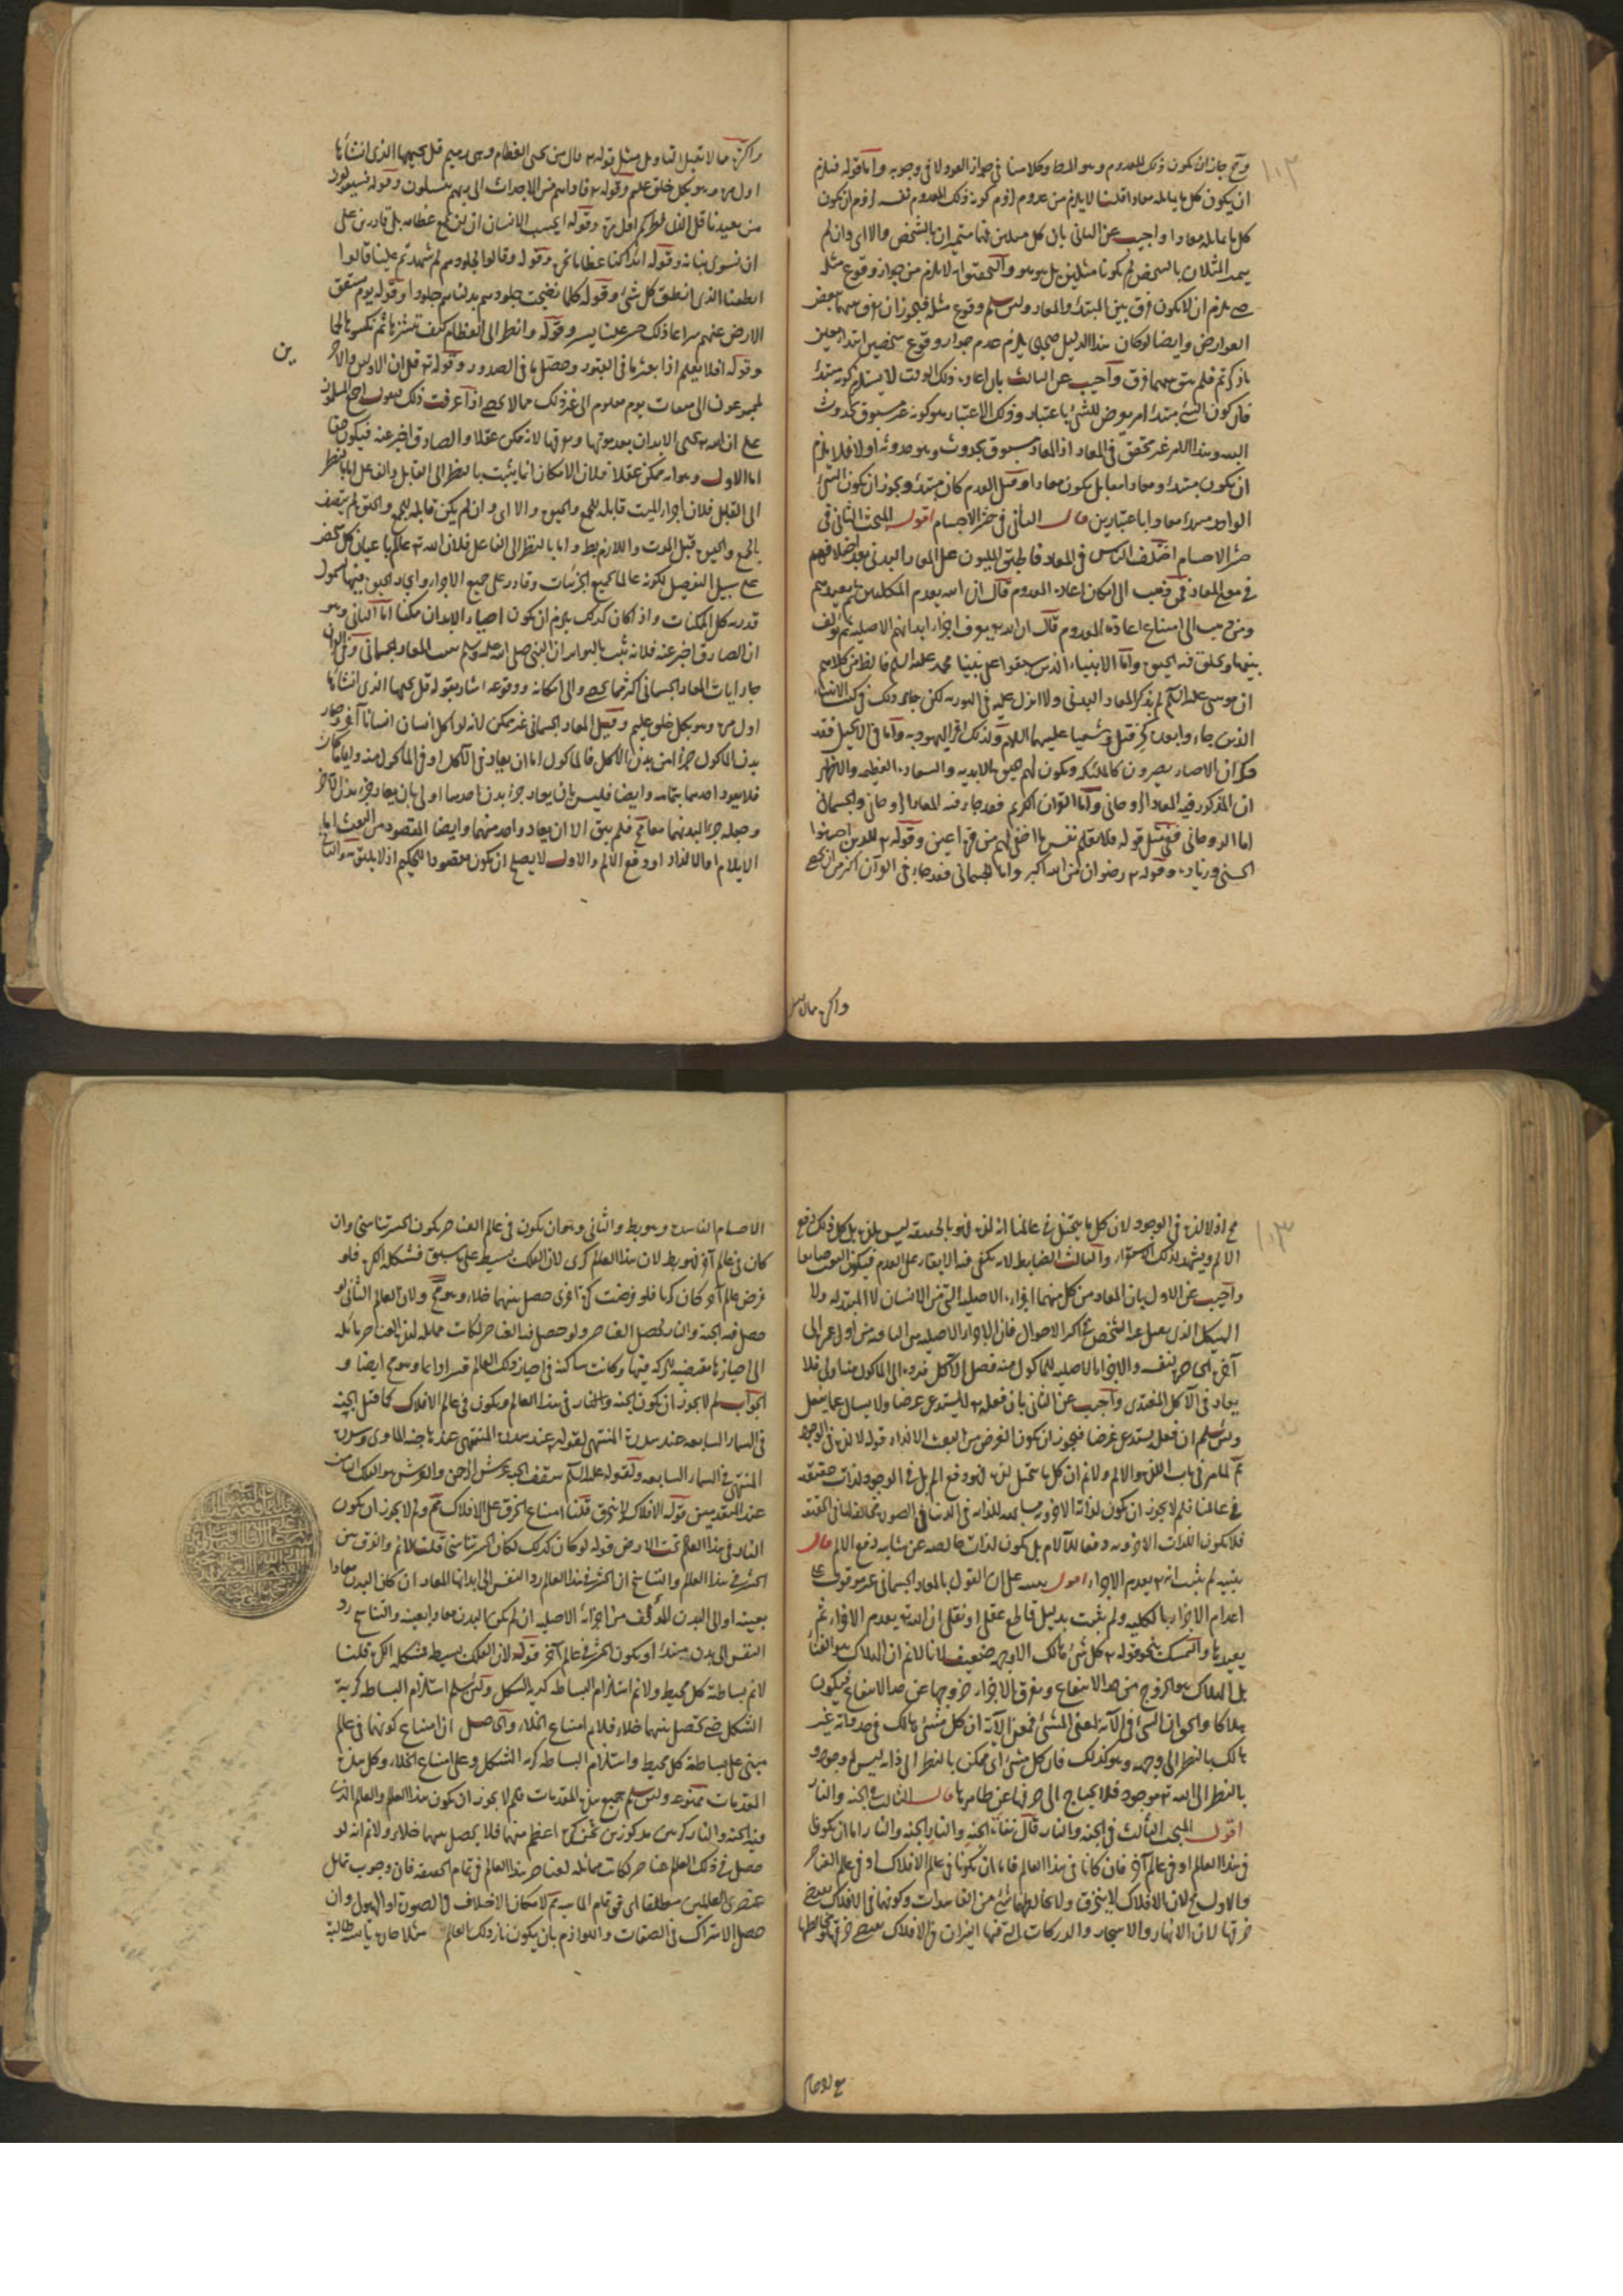 وح جاز ان يكون ذلك المعدوم وهو المدعا وكلامنا في جواز العود لا في وجوبه واما قوله فيلزم
ان يكون كل ما يماثله معادا قلنا لا يلزم من عدم لزوم كونه ذلك المعدوم نفسه لزوم ان يكون
كل ما يماثله معادا واجيب عن الثاني بان كل مثلين فهما متميزان بالشخص والا اى وان لم
يتميز المثلان بالشخص لم يكونا مثلين بل هو هو والتحقيق انه لا يلزم من جواز وقوع مثله
ان لا يكون فرق بين المبتدأ والمعاد ولئن سلم وقوع مثله فيجوز ان يفرق بينهما ببعض
العوارض وايضا لو كان هذا الدليل صحيحا يلزم عدم جواز وقوع شخصين ابتداء بعين
ما ذكرتم فلم يبق بينهما فرق واجيب عن الثالث بان اعادة ذلك الوقت لا يستلزم كونه مبتدأ
فان كون الشئ مبتدأ امر يعرض للشئ باعتبار وذلك الاعتبار هو كونه غير مسبوق بحدوث
البتة وهذا الامر غير متحقق في المعاد اذ المعاد مسبوق بحدوث وهو حدوثه اولا فلا يلزم
ان يكون مبتدأ ومعادا معا بل يكون معادا وقبل العدم كان مبتدأ ويجوز ان يكون الشئ
الواحد مبتدأ ومعادا باعتبارين قال الثاني في حشر الاجسام اقول المبحث الثاني في
حشر الاجسام اختلف الناس في المعاد فاطبق المليون على المعاد البدني بعد اختلافهم
في معنى المعاد فمن ذهب الى امكان اعادة المعدوم قال ان الله يعدم المكلفين ثم يعيدهم
ومن ذهب الى امتناع اعادة المعدوم قال ان الله يفرق اجزاء ابدانهم الاصلية ثم يؤلف
بينها ويخلق فيه الحيوة واما الانبياء الذين سبقوا على نبينا محمد عليه السلم فالظاهر من كلامهم
ان موسى عليه السلم لم يذكر المعاد البدني ولا انزل عليه في التورية لكن جاء ذلك في كتب الانبياء
الذين جاءوا بعده كحزقيل وشعيا عليهما السلام ولذلك اقر اليهود به واما في الانجيل فقد
ذكر ان الاخيار يصيرون كالملائكة ويكون لهم الحيوة الابدية والسعادة العظيمة والاظهر
ان المذكور فيه المعاد الروحاني واما القرآن الكريم فقد جاء فيه المعاد الروحاني والجسماني
اما الروحاني ففي مثل قوله فلا تعلم نفس ما اخفى لهم من قرة اعين وقوله للذين احسنوا
الحسنى وزيادة وقوله ورضوان من الله اكبر واما الجسماني فقد جاء في القرآن اكثر من ان يحصى
واكثره مما لا يقبل
واكثره مما لا يقبل التاويل مثل قوله قال من يحيى العظام وهى رميم قل يحييها الذى انشأها
اول مرة وهو بكل خلق عليم وقوله فاذا هم من الاجداث الى ربهم ينسلون وقوله فسيقولون
من يعيدنا قل الذى فطركم اول مرة وقوله ايحسب الانسان ان لن نجمع عظامه بلى قادرين على
ان نسوى بنانه وقوله ائذا كنا عظاما نخرة وقوله وقالوا لجلودهم لم شهدتم علينا قالوا
انطقنا الله الذى انطق كل شئ وقوله كلما نضجت جلودهم بدلناهم جلودا وقوله يوم تشقق
الارض عنهم سراعا ذلك حشر علينا يسير وقوله وانظر الى العظام كيف ننشزها ثم نكسوها لحما
وقوله افلا يعلم اذا بعثر ما في القبور وحصل ما في الصدور وقوله قل ان الاولين والاخر
ين
لمجموعون الى ميقات يوم معلوم الى غير ذلك مما لا يحصى اذا عرفت ذلك فنقول اجمع المسلمون
على ان الله يحيى الابدان بعد موتها وتفرقها لانه ممكن عقلا والصادق اخبر عنه فيكون حقا
اما الاول وهو انه ممكن عقلا فلان الامكان انما يثبت بالنظر الى القابل والفاعل اما بالنظر
الى القابل فلان اجزاء الميت قابلة للجمع والحيوة والا اى وان لم يكن قابلة للجمع والحيوة لم يتصف
بالجمع والحيوة قبل الموت واللازم بط واما بالنظر الى الفاعل فلان الله عالم باعيان كل شخص
على سبيل التفصيل لكونه عالما بجميع الجزئيات وقادر على جمع الاجزاء وايجاد الحيوة فيها لشمول
قدرته كل الممكنات واذا كان كذلك يلزم ان يكون احياء الابدان ممكنا اما الثاني وهو
ان الصادق اخبر عنه فلانه ثبت بالتواتر ان النبي صلى الله عليه وسلم يثبت المعاد الجسماني وفي القرآن
جاء اثبات المعاد الجسماني اكثر مما يحصى والى امكانه ووقوعه اشار بقوله قل يحييها الذى انشأها
اول مرة وهو بكل خلق عليم وقيل المعاد الجسماني غير ممكن لانه لو اكل انسان انسانا آخر وصار
بدن الماكول جزءا من بدن الآكل فالماكول اما ان يعاد في الآكل او في الماكول منه وايا ما كان
فلا يعود احدهما بتمامه وايضا فليس بان يعاد جزء بدن احدهما اولى بان يعاد جزء بدن الآخر
وجعله جزءا لبدنهما معا مح فلم يبق الا ان يعاد واحد منهما وايضا المقصود من البعث اما
الايلام او الالذاذ او دفع الالم والاول لا يصلح ان يكون مقصودا للحكيم اذ لا يليق به والثاني
مح اذ لا لذة في الوجود لان كل ما يتخيل في عالمنا انه لذة فهو بالحقيقة ليس بلذة بل كل ذلك دفع
الالم ويشهد لذلك الاستقراء والثالث ايضا بط لانه يكفي فيه الابقاء على العدم فيكون البعث ضايعا
واجيب عن الاول بان المعاد من كل منهما اجزاءه الاصلية التي هي الانسان لا المتبدلة ولا
الهيكل الذى يغفل عنه الشخص في اكثر الاحوال فان الاجزاء الاصلية هي الباقية من اول عمره الى
آخره الحاضرة لنفسه والاجزاء الاصلية للماكول منه فضل الآكل فرده الى الماكول منه اولى فلا
يعاد في الآكل المغتذى واجيب عن الثاني بان فعله لا يستدعى غرضا ولا يسال عما يفعل
ولئن سلم ان فعله يستدعى غرضا فيجوز ان يكون الغرض من البعث الالذاذ قوله لا لذة في الوجود
مم لما مر في باب اللذة والالم ولانم ان كل ما يتخيل لذة فهو دفع الم بل في الوجود لذات حقيقية
في عالمنا فلم لا يجوز ان يكون لذات الآخرة مشابهة للذات في الدنيا في الصورة مخالفة لها في الحقيقة
فلا يكون اللذات الاخروية دفعا للآلام بل يكون لذات خالصة عن شائبة دفع الالم قال
تنبيه لم يثبت انه يعدم الاجزاء اقول نبه على ان القول بالمعاد الجسماني غير موقوف على
اعدام الاجزاء بالكلية ولم يثبت بدليل قاطع عقلى او نقلى ان الله يعدم الاجزاء ثم
يعيدها والتمسك بنحو قوله كل شئ هالك الا وجهه ضعيف لانا لانم ان الهلاك هو الفناء
بل الهلاك هو الخروج من حد الانتفاع وتفرق الاجزاء خروجها عن حد الانتفاع فيكون
هلاكا والحق ان الشئ في الآية بمعنى المشئ فمعنى الآية ان كل مشئ هالك في حد ذاته غير
هالك بالنظر الى وجهه وهو كذلك فان كل مشئ اى ممكن بالنظر الى ذاته ليس له وجود و
بالنظر الى الله موجود فلا يحتاج الى صرفها عن ظاهرها قال الثالث في الجنة والنار
اقول المبحث الثالث في الجنة والنار قال نفاة الجنة والنار الجنة والنار اما ان يكونا
في هذا العالم او في عالم آخر فان كانا في هذا العالم فاما ان يكونا في عالم الافلاك او في عالم العناصر
والاول مح لان الافلاك لا ينخرق ولا يخالطها شئ من الفاسدات وكونهما في الافلاك يقتضى
خرقها لان الانهار والاشجار والدركات التي فيها النيران في الافلاك يقتضى خرقها ومخالطتها
مع الاجسام
الاجسام الفاسدة وهو بط والثاني وهو ان يكون في عالم العناصر يكون الحشر تناسخا وان
كان في عالم آخر فهو بط لان هذا العالم كرى لان الفلك بسيط على ما سبق فشكله الكرة فلو
فرض عالم آخر كان كريا فلو فرضت كرة اخرى حصل بينهما خلاء وهو مح ولان العالم الثاني لو
حصل فيه الجنة والنار لحصل فيه العناصر ولو حصل فيه العناصر لكانت مماثلة لهذه العناصر مائلة
الى احيازها مقتضية للحركة فيها وكانت ساكنة في احياز ذلك العالم قسرا دايما وهو مح ايضا و
الجواب لم لا يجوز ان يكون الجنة والنار في هذا العالم ويكون في عالم الافلاك كما قيل الجنة
في السماء السابعة عند سدرة المنتهى لقوله عند سدرة المنتهى عندها جنة الماوى وسدرة
المنتهى في السماء السابعة ولقوله عليه السلم سقف الجنة عرش الرحمن والعرش هو الفلك الثامن
عند المتقدمين قوله الافلاك لا ينخرق قلنا امتناع الخرق على الافلاك مم ولم لا يجوز ان يكون
النار في هذا العالم تحت الارض قوله لو كان كذلك لكان الحشر تناسخا قلنا لانم والفرق بين
الحشر في هذا العالم والتناسخ ان الحشر في هذا العالم رد النفس الى ابدانها المعاد ان كان البدن معادا
بعينه او الى البدن المؤلف من اجزائه الاصلية ان لم يكن البدن معادا بعينه والتناسخ رد
النفس الى بدن مبتدأ او يكون الحشر في عالم آخر قوله لان الفلك بسيط فشكله الكرة قلنا
لانم بساطة كل محيط ولانم استلزام البساطة كرية الشكل ولئن سلم استلزام البساطة كرية
الشكل حتى يحصل بينهما خلاء فلانم امتناع الخلاء والحاصل ان امتناع كونهما في عالم
مبنى على بساطة كل محيط واستلزام البساطة كرية الشكل وعلى امتناع الخلاء وكل هذه
المقدمات ممنوعة ولئن سلم جميع هذه المقدمات فلم لا يجوز ان يكون هذا العالم والعالم الذى
فيه الجنة والنار كرتين مركوزتين في ثخن كرة اعظم منهما فلا يحصل بينهما خلاء ولانم انه لو
حصل في ذلك العالم عناصر لكانت مماثلة لعناصر هذا العالم في تمام الحقيقة فان وجوب تماثل
عنصرى العالمين مطلقا اى في تمام الماهية مم لامكان الاختلاف في الصورة او الهيولى وان
حصل الاشتراك في الصفات واللوازم بان يكون نار ذلك العالم مثلا حارة يابسة طالبة